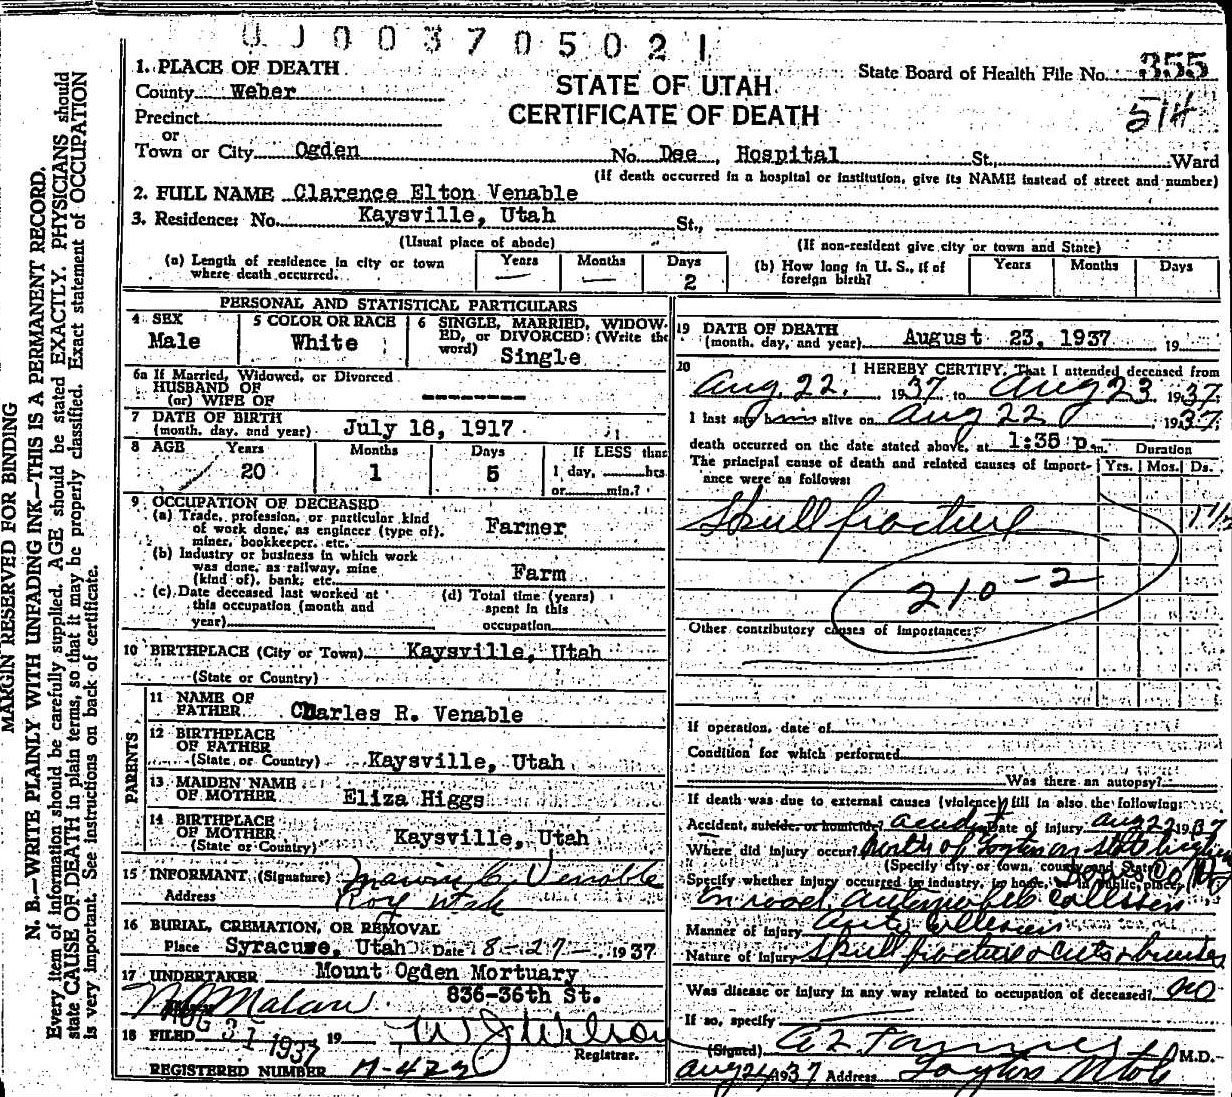 UJ003705021
1. PLACE OF DEATH
County Weber
STATE OF UTAH
CERTIFICATE OF DEATH
State Board of Health File No. 355
514
Precinct
or
Town or City Ogden No. Dee, Hospital St., Ward
(If death occurred in a hospital or institution, give its NAME instead of street and number)
2. FULL NAME Clarence Elton Venable
3. Residence: No. Kaysville, Utah St.,
(Usual place of abode) (If non-resident give city or town and State)
(a) Length of residence in city or town where death occurred. Years — Months — Days 2
(b) How long in U. S., if of foreign birth? Years Months Days
PERSONAL AND STATISTICAL PARTICULARS
4 SEX Male
5 COLOR OR RACE White
6 SINGLE, MARRIED, WIDOWED, or DIVORCED (Write the word) Single
6a If Married, Widowed, or Divorced
HUSBAND OF
(or) WIFE OF --------
7 DATE OF BIRTH
(month, day, and year) July 18, 1917
8 AGE Years 20 Months 1 Days 5 If LESS than 1 day, hrs or min.?
9 OCCUPATION OF DECEASED
(a) Trade, profession, or particular kind
of work done, as engineer (type of),
miner, bookkeeper, etc. Farmer
(b) Industry or business in which work
was done, as railway, mine
(kind of), bank, etc. Farm
(c) Date deceased last worked at
this occupation (month and
year)
(d) Total time (years)
spent in this
occupation
10 BIRTHPLACE (City or Town) Kaysville, Utah
(State or Country)
PARENTS
11 NAME OF
FATHER Charles R. Venable
12 BIRTHPLACE
OF FATHER
(State or Country) Kaysville, Utah
13 MAIDEN NAME
OF MOTHER Eliza Higgs
14 BIRTHPLACE
OF MOTHER
(State or Country) Kaysville, Utah
15 INFORMANT (Signature) Marvin C. Venable
Address Roy Utah
16 BURIAL, CREMATION, OR REMOVAL
Place Syracuse, Utah Date 8-27- 1937
17 UNDERTAKER Mount Ogden Mortuary
Malan 836-36th St.
18 FILED AUG 31 1937 19 W J Wilson
Registrar.
REGISTERED NUMBER H-422
19 DATE OF DEATH
(month, day, and year) August 23, 1937 19
20 I HEREBY CERTIFY, That I attended deceased from
Aug. 22. 1937 to Aug 23 1937.
I last saw him alive on Aug 22 1937.
death occurred on the date stated above, at 1:35 p.m.
Duration
The principal cause of death and related causes of importance were as follows: Yrs. Mos. Ds.
Skull fracture 1 1/2
210-2
Other contributory causes of importance:
If operation, date of
Condition for which performed
Was there an autopsy?
If death was due to external causes (violence) fill in also the following:
Accident, suicide, or homicide? accident Date of injury aug 22 1937
Where did injury occur? North of Layton on state highway
(Specify city or town, county and State)
Davis Co
Specify whether injury occurred in industry, in home, or in public place,
On road. Automobile Collision
Manner of injury Auto Collision
Nature of injury Skull fracture & cuts & bruises
Was disease or injury in any way related to occupation of deceased? no
If so, specify
(Signed) A Z Tanner M.D.
Aug 24 1937 Address Layton Utah
MARGIN RESERVED FOR BINDING
N. B.—WRITE PLAINLY WITH UNFADING INK—THIS IS A PERMANENT RECORD.
Every item of information should be carefully supplied. AGE should be stated EXACTLY. PHYSICIANS should
state CAUSE OF DEATH in plain terms, so that it may be properly classified. Exact statement of OCCUPATION
is very important. See instructions on back of certificate.